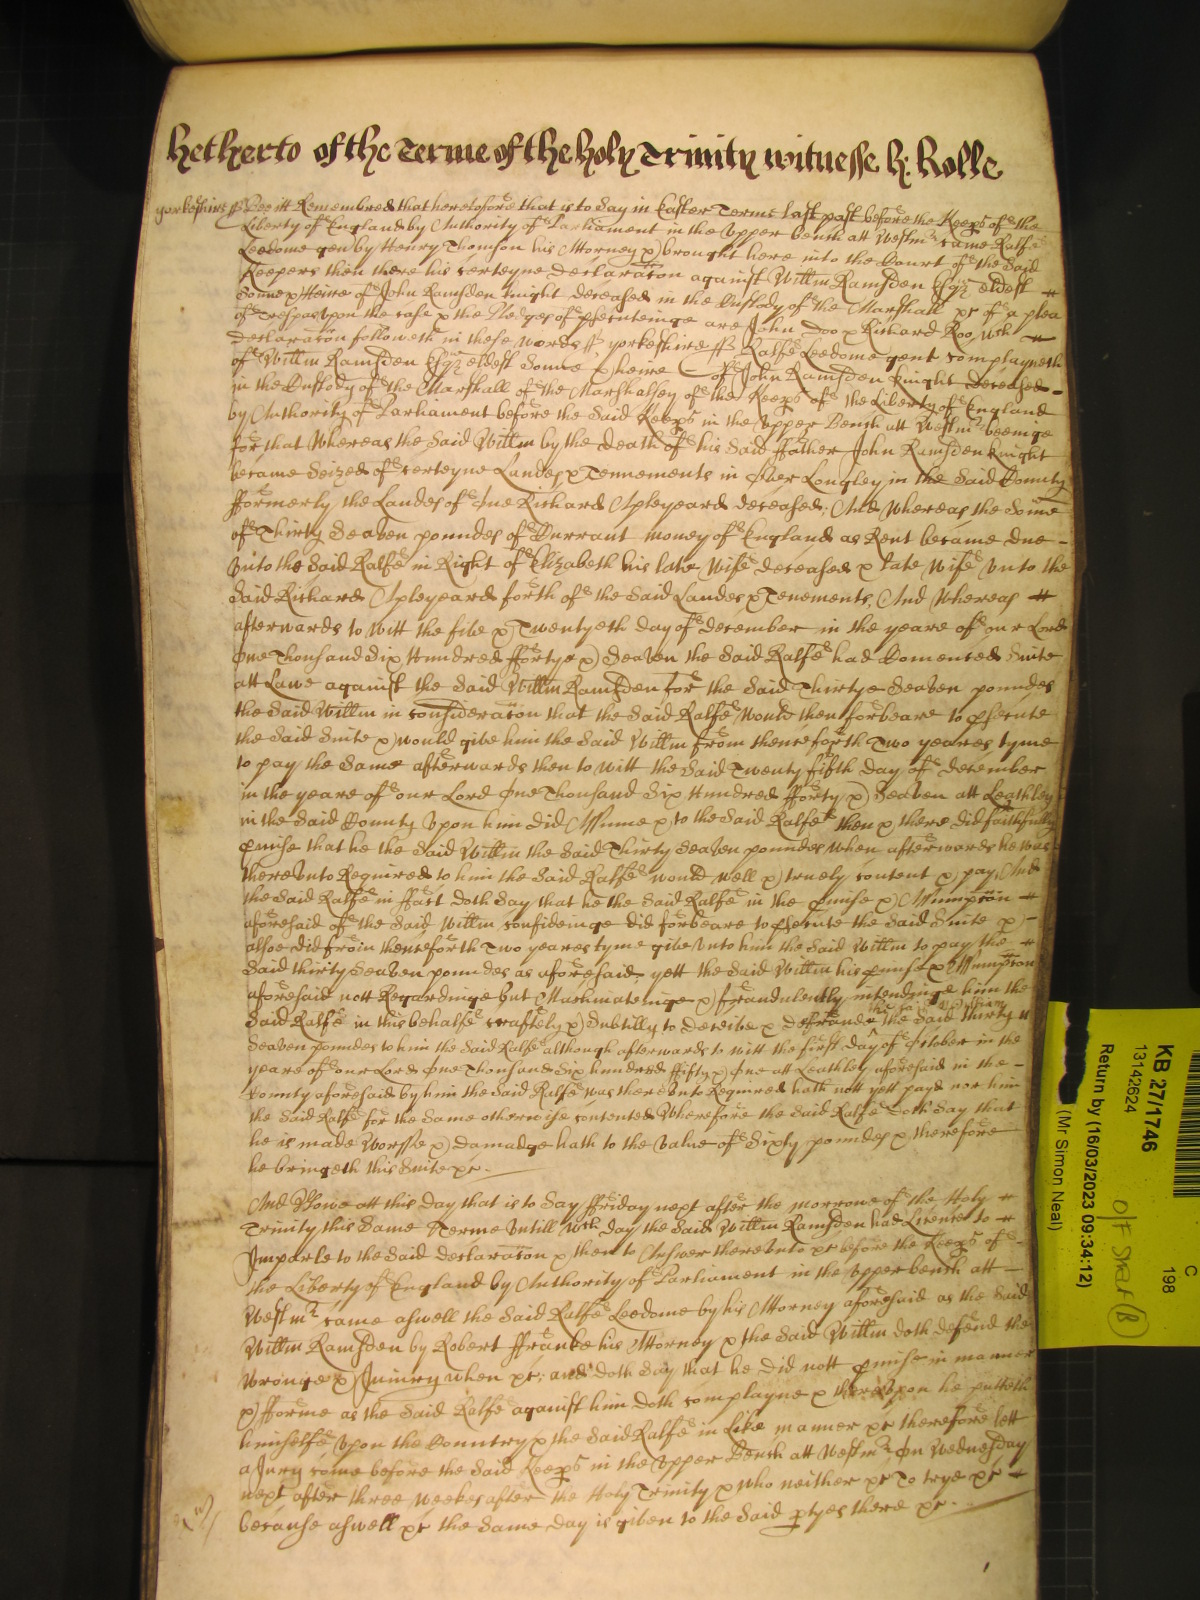 Hetherto of the Terme of the Holy Trinity witnesse H: Rolle
Yorkeshire ss Bee itt Remembred that heretofore that is to say in Easter Terme last past before the Keeps of the
Liberty of England by Authority of Parliament in the Upper bench att Westmr came Ralfe
Leedome gen by Henry Thomson his Attorney & brought here into the Court of the said
Keepers then there his certeyne declaracon against Willm Ramsden Esqr eldest
Sonne & Heire of John Ramsden knight deceased in the Custody of the Marshall &c of a plea
of Trespas upon the case & the Pledges of psecuteinge are John Doo & Richard Roo, wch
declaracon followeth in these words ss Yorkeshire ss Ralfe Leedome gent complayneth
of Willm Ramsden Esqr eldest Sonne & heire of John Ramsden knight deceased
in the Custody of the Marshall of the Marshalsey of the Keeps of the Liberty of England
by Authority of Parliament before the said Keeps in the Upper Bench att Westmr beeinge
for that Whereas the said Willm by the death of his said ffather John Ramsden knight
became Seized of certeyne Landes & Tennements in Over Longley in the said County
fformerly the Landes of One Richard Apleyeard deceased, And Whereas the Some
of Thirty Seaven poundes of Currant money of England as Rent became due
unto the said Ralfe in Right of Elizabeth his late Wife deceased & late Wife unto the
said Richard Apleyeard forth of the said Landes & Tenements, And Whereas
afterwards to witt the five & Twentyeth day of december in the yeare of our Lord
One Thousand Six Hundred ffortye & Seaven the said Ralfe had Comenced Suite
att Lawe against the said Willm Ramsden for the said Thirtye Seaven poundes
the said Willm in consideracon that the said Ralfe would then forbeare to psecute
the said Suite & would give him the said Willm from thenceforth Two yeares tyme
to pay the same afterwards then to witt the said Twenty fifth day of december
in the yeare of our Lord One Thousand Six Hundred fforty & Seaven att Leathley
in the said County Upon him did Assume & to the said Ralfe then & there did faithfully
pmise that he the said Willm the said Thirty Seaven poundes when afterwards he was
thereunto Required to him the said Ralfe would well & truely content & pay, And
the said Ralfe in ffact doth say that he the said Ralfe in the pmise & Assumpcon
aforesaid of the said Willm confideinge did forbeare to psecute the said Suite &
alsoe did from thenceforth Two yeares tyme give unto him the said Willm to pay the
said thirty Seaven poundes as aforesaid, yett the said Willm his pmise & Assumpcon
aforesaid nott Regardinge but Machinateinge & fraudulently intendinge him the
said Ralfe in this behalfe craftely & subtilly to deceive & defraude the said thirty
Seaven poundes to him the said Ralfe although afterwards to witt the first day of October in the
yeare of our Lord One Thousand Six hundred ffifty & One att Leathley aforesaid in the
County aforesaid by him the said Ralfe was thereunto Required hath nott yett payd nor him
the said Ralfe for the same otherwise contented Wherefore the said Ralfe doth say that
he is made Worsse & damadge hath to the value of Sixty poundes & therefore
he bringeth this Suite &c.
And Nowe att this day that is to say ffriday next after the morrowe of the Holy
Trinity this same Terme Untill wch day the said Willm Ramsden had Licence to
Imparle to the said declaracon & then to Answer thereunto &c before the Keeps of
the Liberty of England by Authority of Parliament in the Upper bench att
Westmr came aswell the said Ralfe Leedome by his Attorney aforesaid as the said
Willm Ramsden by Robert ffranke his Attorney & the said Willm doth defend the
wronge & Iniury when &c; and doth say that he did nott pmise in manner
& fforme as the said Ralfe against him doth complayne & thereupon he putteth
himselfe Upon the Country & the said Ralfe in Like manner &c therefore lett
a Jury come before the said Keeps in the Upper Bench att Westmr On Wednesday
next after three weekes after the Holy Trinity & who neither &c To trye &c
because aswell &c the same day is given to the said ptyes there &c.
C
198
KB 27/1746
13142624
O/F Street (B)
Return by (16/03/2023 09:34:12)
(Mr Simon Neal)